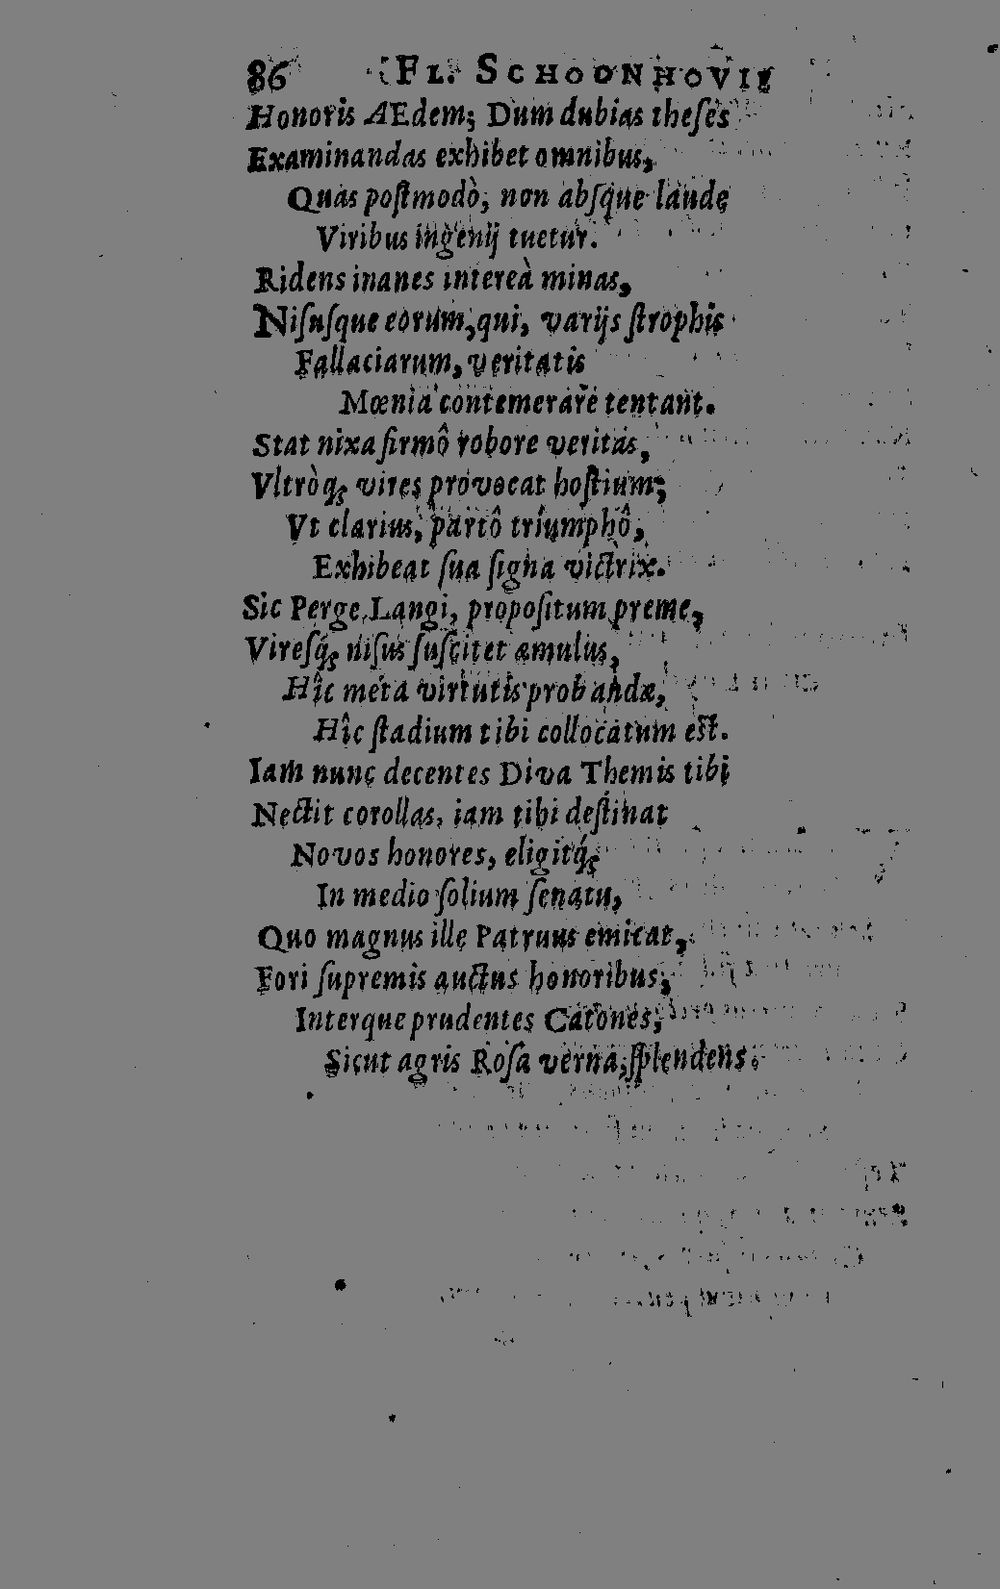 86 FL. SCHOONHOVII
Honoris AEdem; Dum dubias theses
Examinandas exhibet omnibus,
Quas postmodò, non absque laude
Viribus ingenij tuetur.
Ridens inanes intereà minas,
Nisusque eorum, qui, varijs strophis
Fallaciarum, veritatis
Mœnia contemerare tentant.
Stat nixa firmô robore veritas,
Vltròq; vires provocat hostium;
Vt clarius, partô triumphô,
Exhibeat sua signa victrix.
Sic Perge Langi, propositum preme,
Viresq́; nisus suscitet æmulus,
Hîc meta virtutis probandæ,
Hîc stadium tibi collocatum est.
Iam nunc decentes Diva Themis tibi
Nectit corollas, iam tibi destinat
Novos honores, eligitq́;
In medio solium senatu,
Quo magnus ille Patruus emicat,
Fori supremis auctus honoribus;
Interque prudentes Catones,
Sicut agris Rosa verna, splendens.